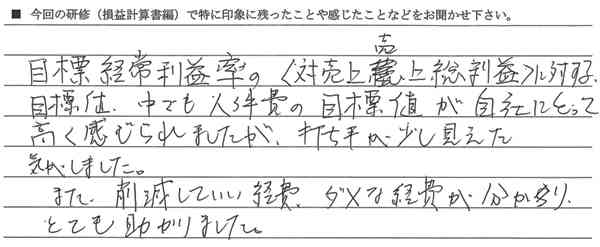 ■ 今回の研修（損益計算書編）で特に印象に残ったことや感じたことなどをお聞かせ下さい。
目標経常利益率の〈対売上売上総利益〉に対する、
目標値、中でも人件費の目標値が自社にとって
高く感じられましたが、打ち手が少し見えた
気がしました。
また、削減していい経費、ダメな経費が分かり、
とても助かりました。